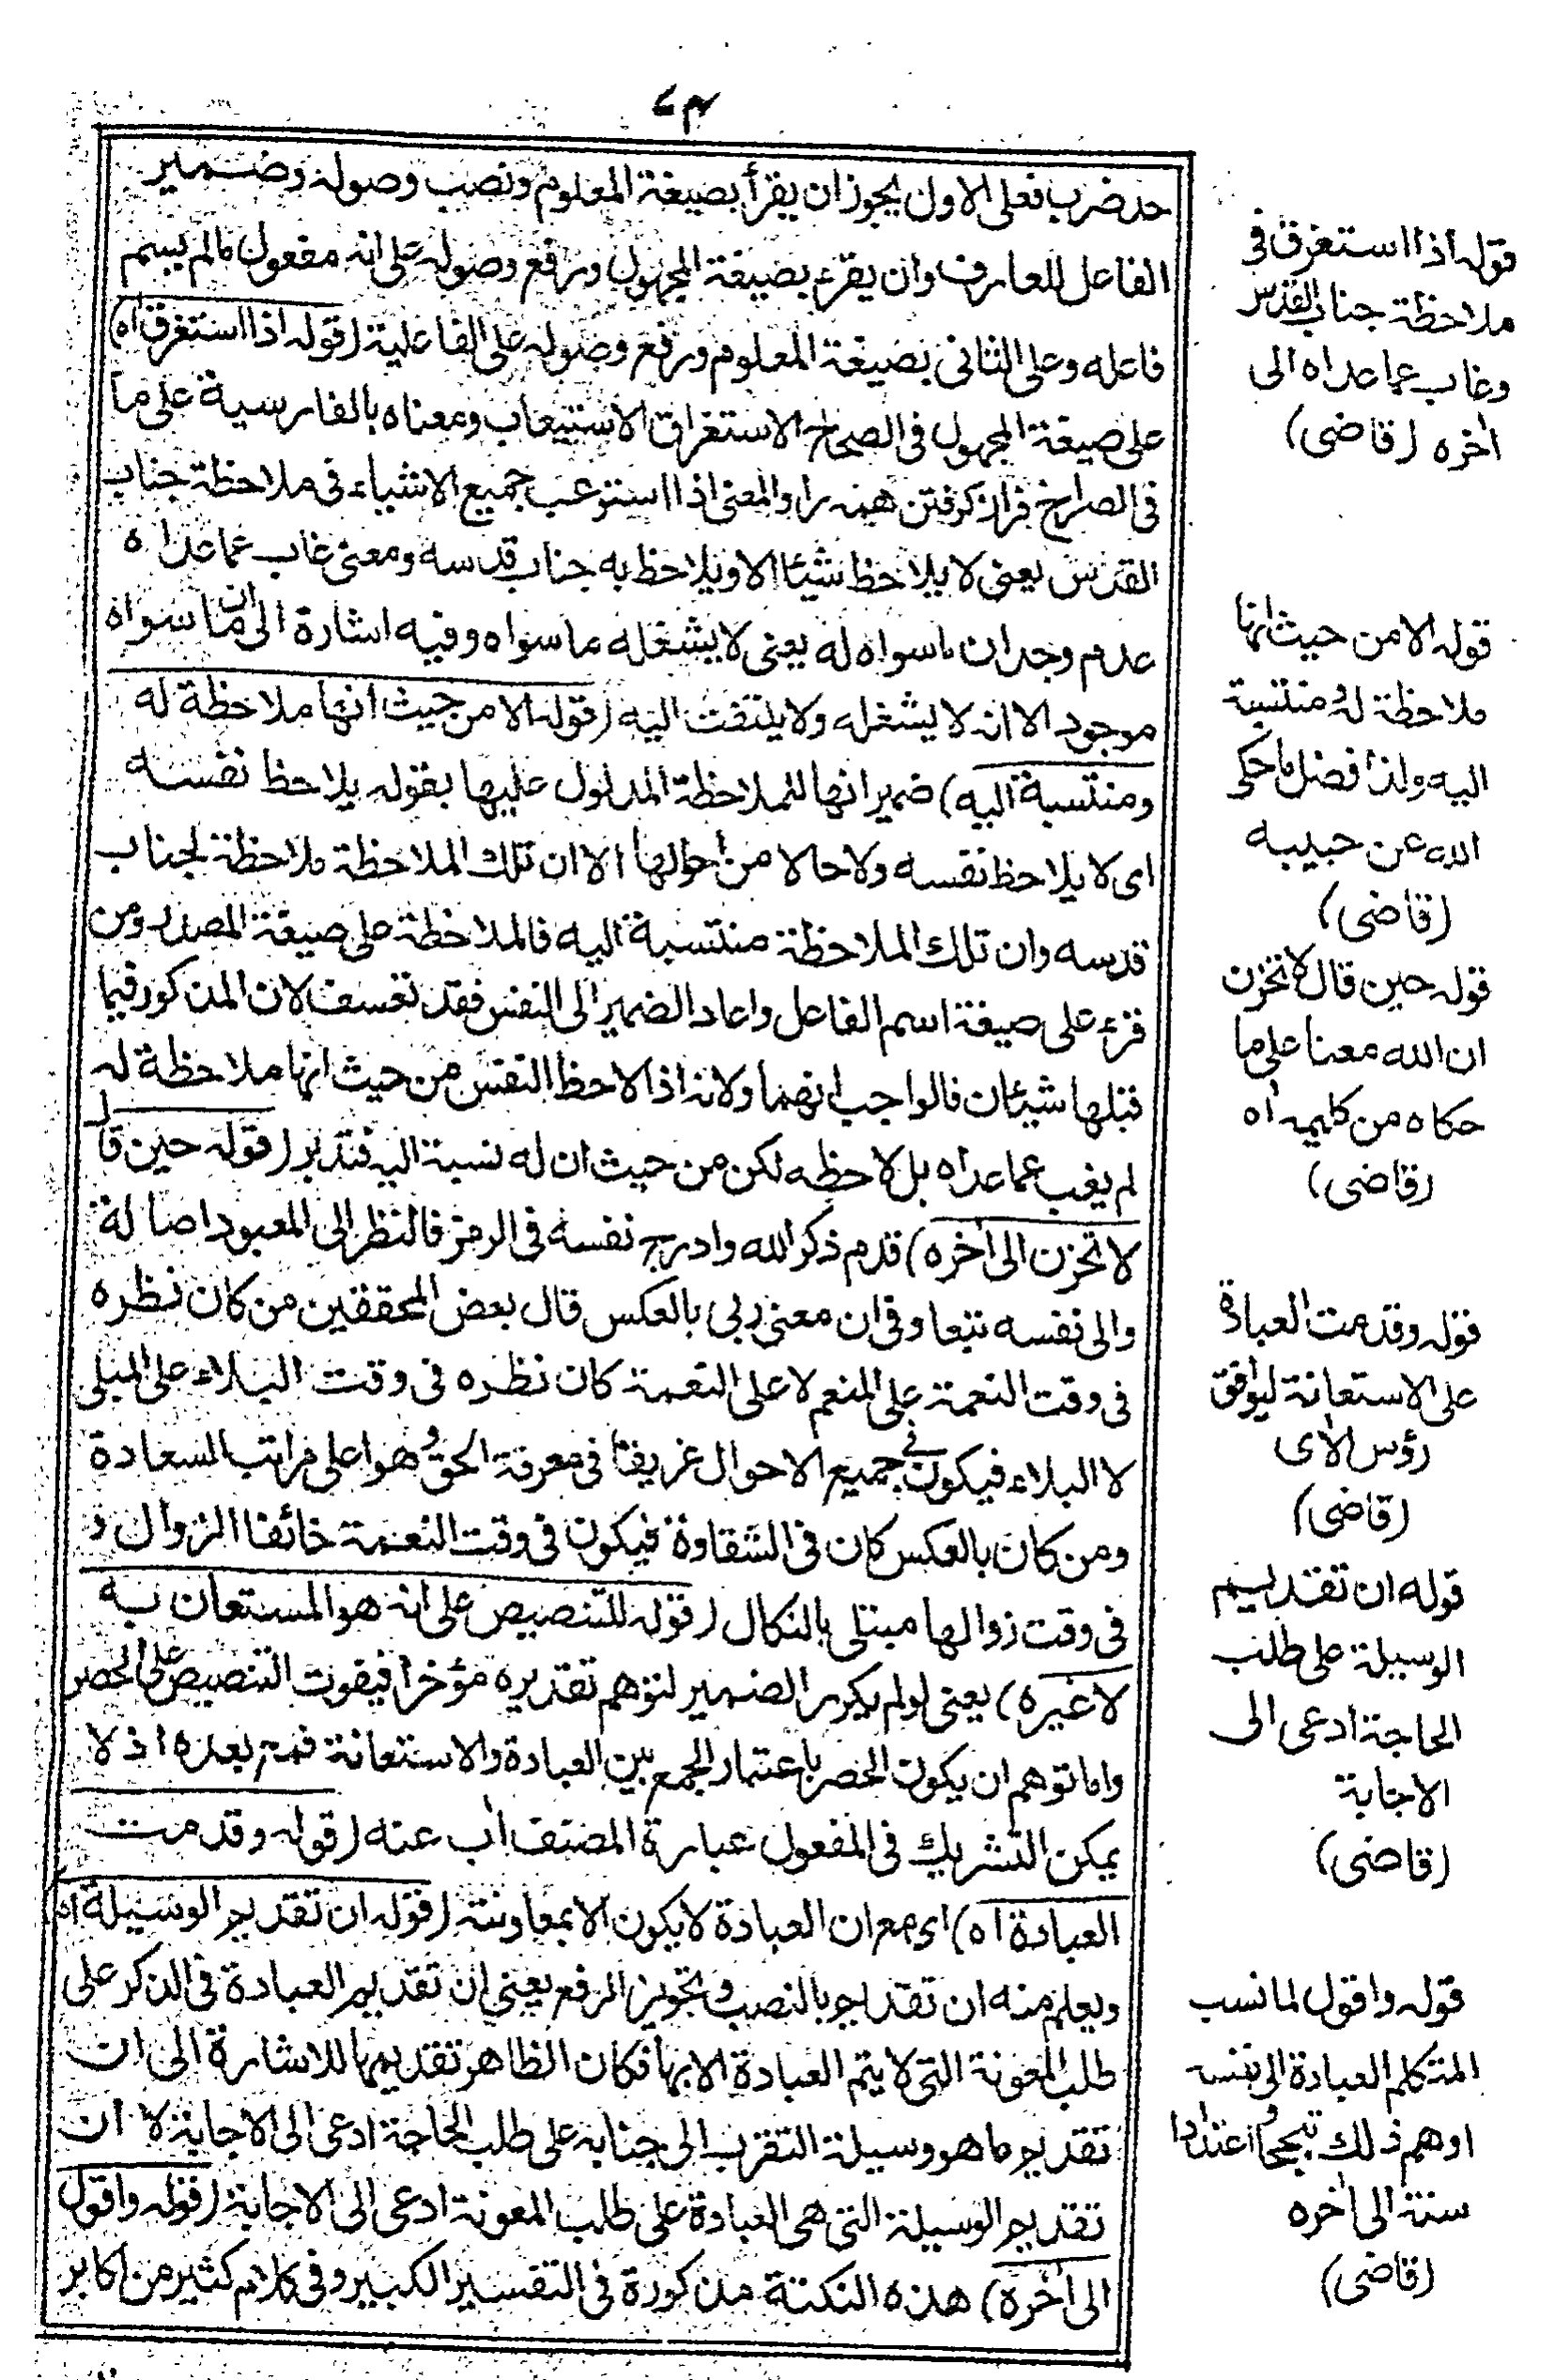 ٧٣
حد ضرب فعلى الاول يجوز ان يقرأ بصيغة المعلوم ونصب وصوله وضمير
الفاعل للعارف وان يقرء بصيغة المجهول ورفع وصوله على انه مفعول مالم يسم
فاعله وعلى الثانى بصيغة المعلوم ورفع وصوله على الفاعلية (قوله اذا استغرق اه)
على صيغة المجهول فى الصحاح الاستغراق الاستيعاب ومعناه بالفارسية على ما
فى الصراح فراز كرفتن همه را والمعنى اذا استوعب جميع الاشياء فى ملاحظة جناب
القدس يعنى لا يلاحظ شيئا الا ويلاحظ به جناب قدسه ومعنى غاب عما عداه
عدم وجدان ماسواه له يعنى لا يشغله ما سواه وفيه اشارة الى ان ما سواه
موجود الا انه لا يشغله ولا يلتفت اليه (قوله الا من حيث انها ملاحظة له
ومنتسبة اليه) ضمير انها للملاحظة المدلول عليها بقوله يلاحظ نفسه
اى لا يلاحظ نفسه ولا حالا من احوالها الا ان تلك الملاحظة ملاحظة لجناب
قدسه وان تلك الملاحظة منتسبة اليه فالملاحظة على صيغة المصدر ومن
قرء على صيغة اسم الفاعل واعاد الضمير الى النفس فقد تعسف لان المذكور فيما
قبلها شيئان فالواجب انهما ولانه اذا لاحظ النفس من حيث انها ملاحظة له
لم يغب عما عداه بل لاحظه لكن من حيث ان له نسبة اليه فتدبر (قوله حين قال
لا تحزن الى اخره) قدم ذكر الله وادرج نفسه فى الرمز فالنظر الى المعبود اصالة
والى نفسه تبعا وفى ان معنى ربى بالعكس قال بعض المحققين من كان نظره
فى وقت النعمة على المنعم لا على النعمة كان نظره فى وقت البلاء على المبلى
لا البلاء فيكون فى جميع الاحوال غريقا فى معرفة الحق وهو اعلى مراتب السعادة
ومن كان بالعكس كان فى الشقاوة فيكون فى وقت النعمة خائفا الزوال و
فى وقت زوالها مبتلى بالنكال (قوله للتنصيص على انه هو المستعان به
لا غيره) يعنى لو لم يكرر الضمير لتوهم تقديره مؤخرا فيفوت التنصيص على الحصر
واما توهم ان يكون الحصر باعتبار الجمع بين العبادة والاستعانة فمتر بعده اذ لا
يمكن التشريك فى المفعول عبارة المصنف اب عنه (قوله وقدمت
العبادة اه) اى مع ان العبادة لا يكون الا بمعاونته (قوله ان تقديم الوسيلة اه
ويعلم منه ان تقديم بالنصب وتجويز الرفع يعنى ان تقديم العبادة فى الذكر على
طلب المعونة التى لا يتم العبادة الا بها فكان الظاهر تقديمها للاشارة الى ان
تقديم ما هو وسيلة التقرب الى جنابه على طلب الحاجة ادعى الى الاجابة لا ان
تقديم الوسيلة التى هى العبادة على طلب المعونة ادعى الى الاجابة (قوله واقول
الى اخره) هذه النكتة مذكورة فى التفسير الكبير وفى كلام كثير من اكابر
قوله اذا استغرق فى
ملاحظة جناب القدس
وغاب عما عداه الى
اخره (قاضى)
قوله الا من حيث انها
ملاحظة له ومنتسبة
اليه ولذا فضل ما حكى
الله عن حبيبه
(قاضى)
قوله حين قال لا تحزن
ان الله معنا على ما
حكاه من كليمه اه
(قاضى)
قوله وقدمت العبادة
على الاستعانة ليوافق
رؤس الاى
(قاضى)
قوله ان تقديم
الوسيلة على طلب
الحاجة ادعى الى
الاجابة
(قاضى)
قوله واقول لما نسب
المتكلم العبادة الى نفسه
اوهم ذلك تبجحا واعتدادا
منه الى اخره
(قاضى)